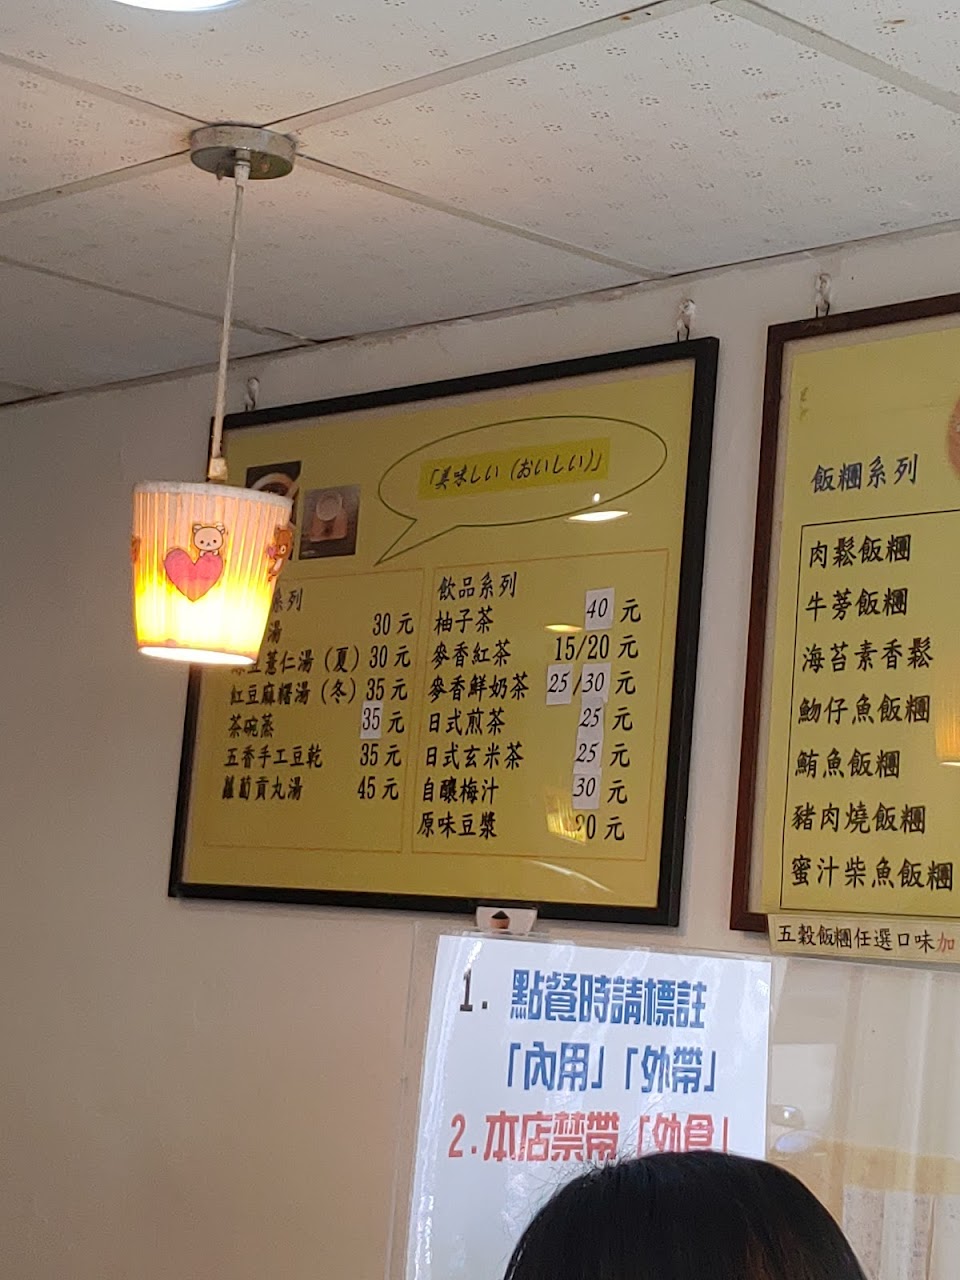 「美味しい（おいしい）」
系列
湯 30元
豆薏仁湯（夏）30元
紅豆麻糬湯（冬）35元
茶碗蒸 35元
五香手工豆乾 35元
蘿蔔貢丸湯 45元
飲品系列
柚子茶 40元
麥香紅茶 15/20元
麥香鮮奶茶 25/30元
日式煎茶 25元
日式玄米茶 25元
自釀梅汁 30元
原味豆漿 元
飯糰系列
肉鬆飯糰
牛蒡飯糰
海苔素香鬆
魩仔魚飯糰
鮪魚飯糰
豬肉燒飯糰
蜜汁柴魚飯糰
五穀飯糰任選口味加
1. 點餐時請標註
「內用」「外帶」
2.本店禁帶「外食」